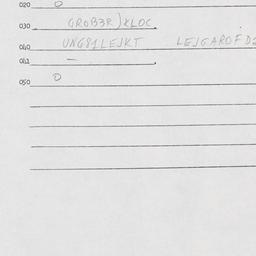 020 O
030 GROB3R)KLOC
040 UNG81LEJKT LEJGAROFD
041 —
050 O